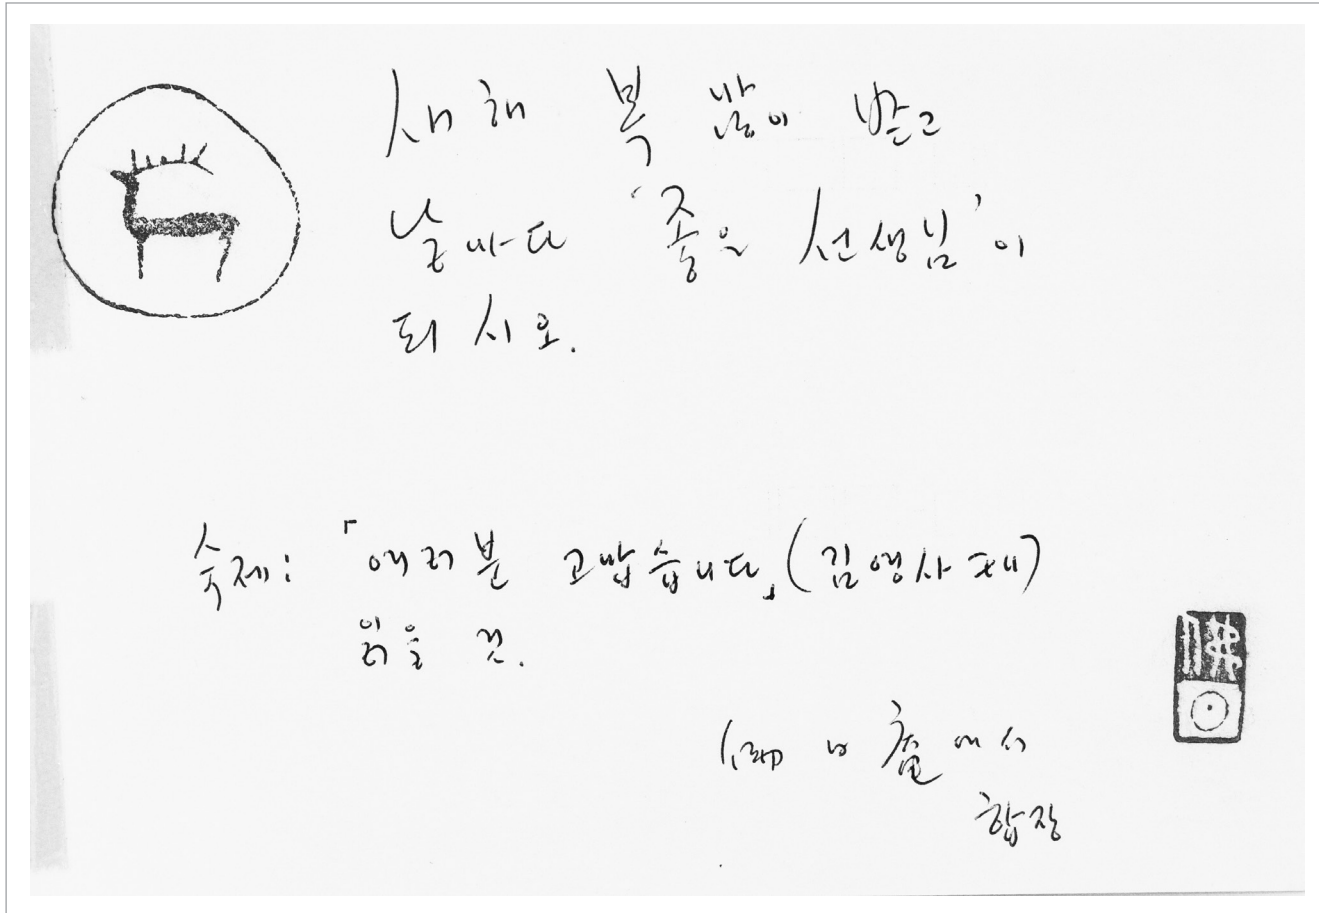 새해 복 많이 받고
날마다 '좋은 선생님'이
되시오.
숙제: 「여러분 고맙습니다」 (김영사 펴)
읽을 것.
에서
합장